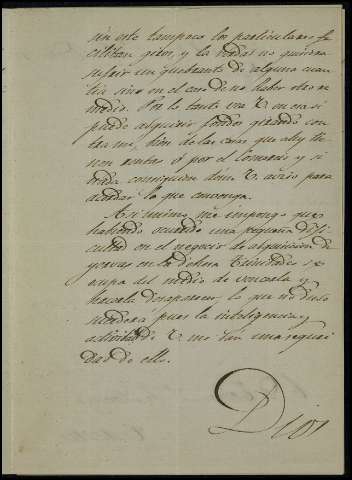 sin este tampoco los particulares fa
cilitan giros, y la viuda no quiera
sufrir un quebranto de alguna cuan
tia sino en el caso de no haber otro re
medio. Por lo tanto vea V. en eso si
puede adquirir fondos girando con
tra mi, bien de las casas que ahy tie
nen rentas ó por el Comercio y si
nada consiguiere deme V. aviso para
acordar lo que convenga.
Asi mismo me impongo que
habiendo ocurrido una pequeña difi
cultad en el negocio de adquisicion de
yerbas en la dehesa
ocupa del medio de vencerla y
hacerla desaparecer, lo que no dudo
sucederá pues la inteligencia y
actividad de V. me dan una seguri
dad de ello.
Dios